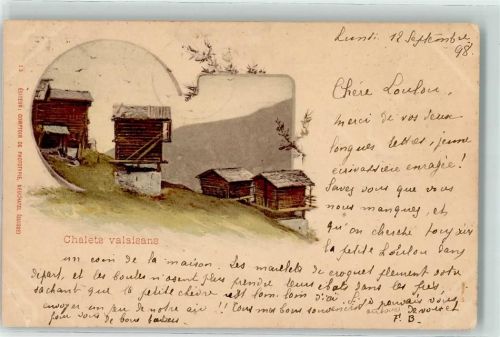 Lundi 12 Septembre
98.
Chère Loulou,
merci de vos deux
longues lettres, jeune
écrivassière enragée!
Savez vous que vous
nous manquez, et
qu'on cherche toujours
la petite Loulou dans
un coin de la maison. Les maillets de croquet pleurent votre
départ, et les boules n'osent plus prendre leurs ébats dans les prés,
sachant que la petite chèvre est loin, loin d'ici. Si je pouvais vous
envoyer un peu de notre air!! Tous mes bons souvenirs
pour vous de bons baisers.
F. B.
Chalets valaisans
13 ÉDITEUR: COMPTOIR DE PHOTOTYPIE, NEUCHATEL (SUISSE)